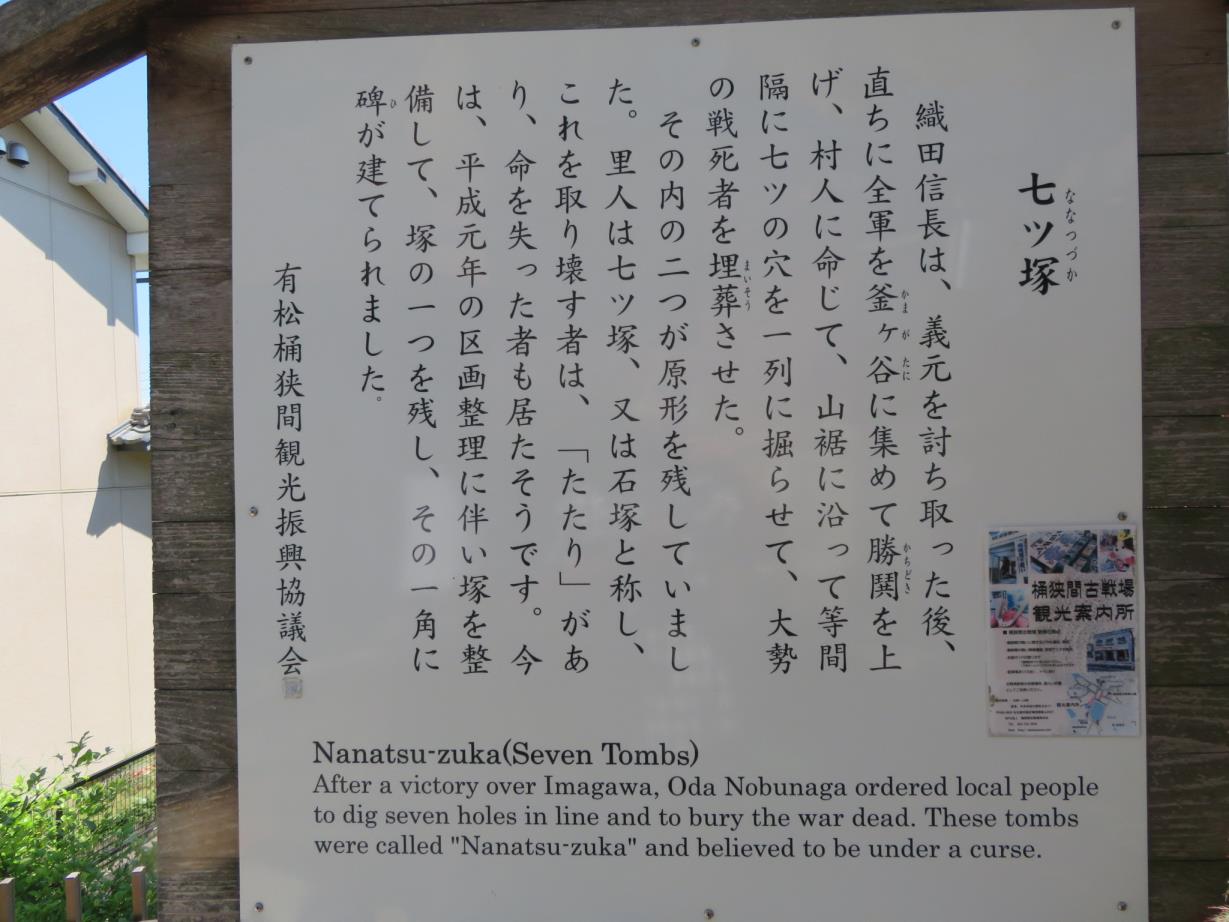 七ツ塚
ななつづか
織田信長は、義元を討ち取った後、
直ちに全軍を釜ヶ谷に集めて勝鬨を上
かまがたに
かちどき
げ、村人に命じて、山裾に沿って等間
隔に七ツの穴を一列に掘らせて、大勢
の戦死者を埋葬させた。
まいそう
その内の二つが原形を残していまし
た。里人は七ツ塚、又は石塚と称し、
これを取り壊す者は、「たたり」があ
り、命を失った者も居たそうです。今
は、平成元年の区画整理に伴い塚を整
備して、塚の一つを残し、その一角に
碑が建てられました。
ひ
有松桶狭間観光振興協議会
桶狭間古戦場
観光案内所
Nanatsu-zuka(Seven Tombs)
After a victory over Imagawa, Oda Nobunaga ordered local people
to dig seven holes in line and to bury the war dead. These tombs
were called "Nanatsu-zuka" and believed to be under a curse.